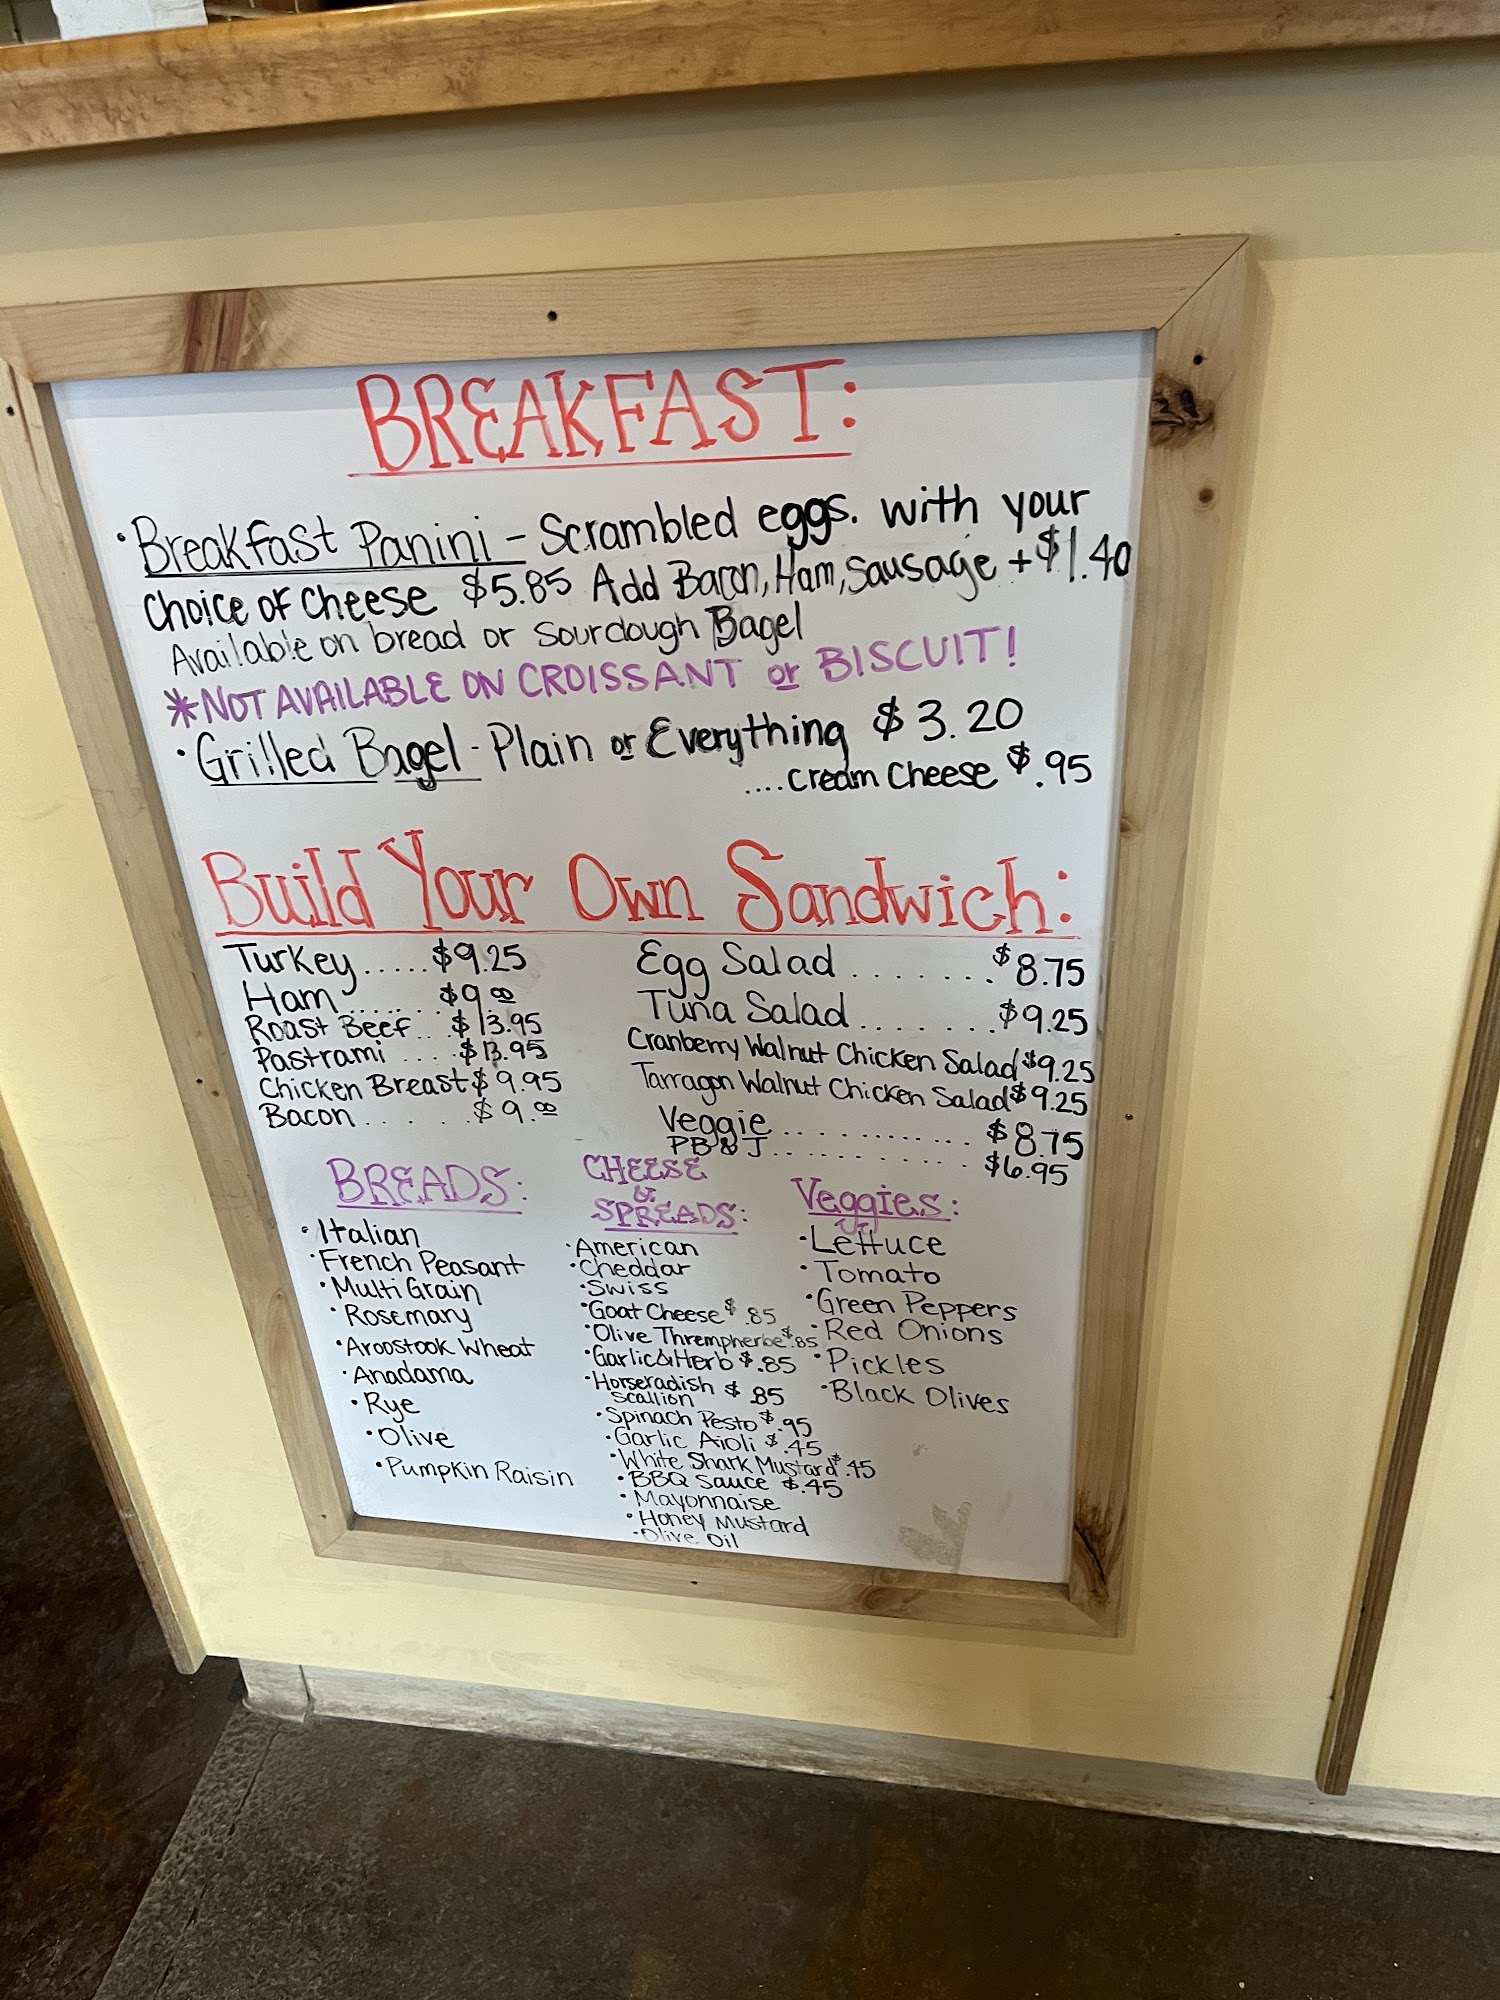 BREAKFAST:
• Breakfast Panini - Scrambled eggs. with your
choice of cheese $5.85 Add Bacon, Ham, Sausage + $1.40
Available on bread or sourdough Bagel
*NOT AVAILABLE ON CROISSANT or BISCUIT!
• Grilled Bagel - Plain or Everything $3.20
....cream cheese $.95
Build Your Own Sandwich:
Turkey.....$9.25
Ham......$9.00
Roast Beef...$13.95
Pastrami....$13.95
Chicken Breast $9.95
Bacon......$9.00
Egg Salad.......$8.75
Tuna Salad.......$9.25
Cranberry Walnut Chicken Salad $9.25
Tarragon Walnut Chicken Salad $9.25
Veggie............$8.75
PB & J............$6.95
BREADS:
• Italian
• French Peasant
• Multi Grain
• Rosemary
• Aroostook Wheat
• Anadama
• Rye
• Olive
• Pumpkin Raisin
CHEESE
&
SPREADS:
• American
• Cheddar
• Swiss
• Goat Cheese $.85
• Olive Thrempherbe $.85
• Garlic & Herb $.85
• Horseradish $.85
Scallion
• Spinach Pesto $.95
• Garlic Aioli $.45
• White Shark Mustard $.45
• BBQ Sauce $.45
• Mayonnaise
• Honey Mustard
• Olive Oil
Veggies:
• Lettuce
• Tomato
• Green Peppers
• Red Onions
• Pickles
• Black Olives